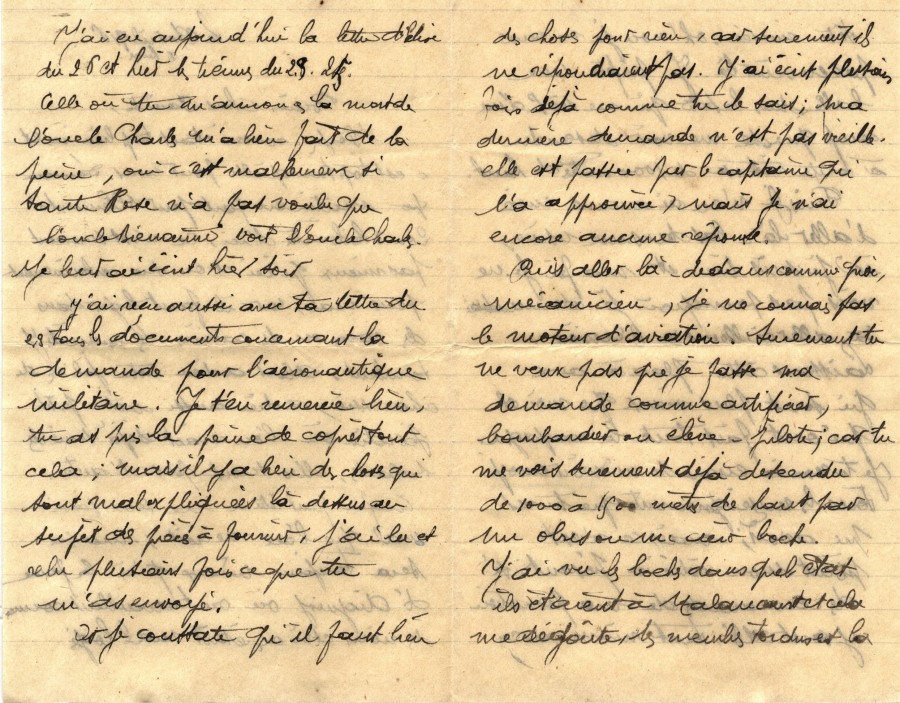 J'ai eu aujourd'hui la lettre d'Elise
du 26 et hier les tiennes du 23. 25.
Celle où tu m'annonces la mort de
l'oncle Charles m'a bien fait de la
peine, oui c'est malheureux si
tante Rose n'a pas voulu que
l'oncle Bienaimé voit l'oncle Charles.
Je leur ai écrit hier soir
J'ai reçu aussi avec ta lettre du
23 tous les documents concernant la
demande pour l'aéronautique
militaire. Je t'en remercie bien,
tu as pris la peine de copier tout
cela ; mais il y a bien des choses qui
sont mal expliquées là dessus au
sujet des pièces à fournir, j'ai lu et
relu plusieurs fois ce que tu
m'as envoyé.
Et je constate qu'il faut bien
des choses pour rien, car surement ils
ne répondraient pas. J'ai écrit plusieurs
fois déjà comme tu le sais ; ma
dernière demande n'est pas vieille.
elle est passée par le capitaine qui
l'a approuvée, mais je n'ai
encore aucune réponse.
Puis aller là-dedans comme quoi,
mécanicien, je ne connais pas
le moteur d'aviation. Surement tu
ne veux pas que je fasse ma
demande comme artificier,
bombardier ou élève-pilote ; car tu
me vois surement déjà descendu
de 1000 à 1500 mèts de haut par
un obus ou un aéro boche.
J'ai vu les boches dans quel état
ils étaient à Malancourt et cela
me dégoûte, les membres tordus et la